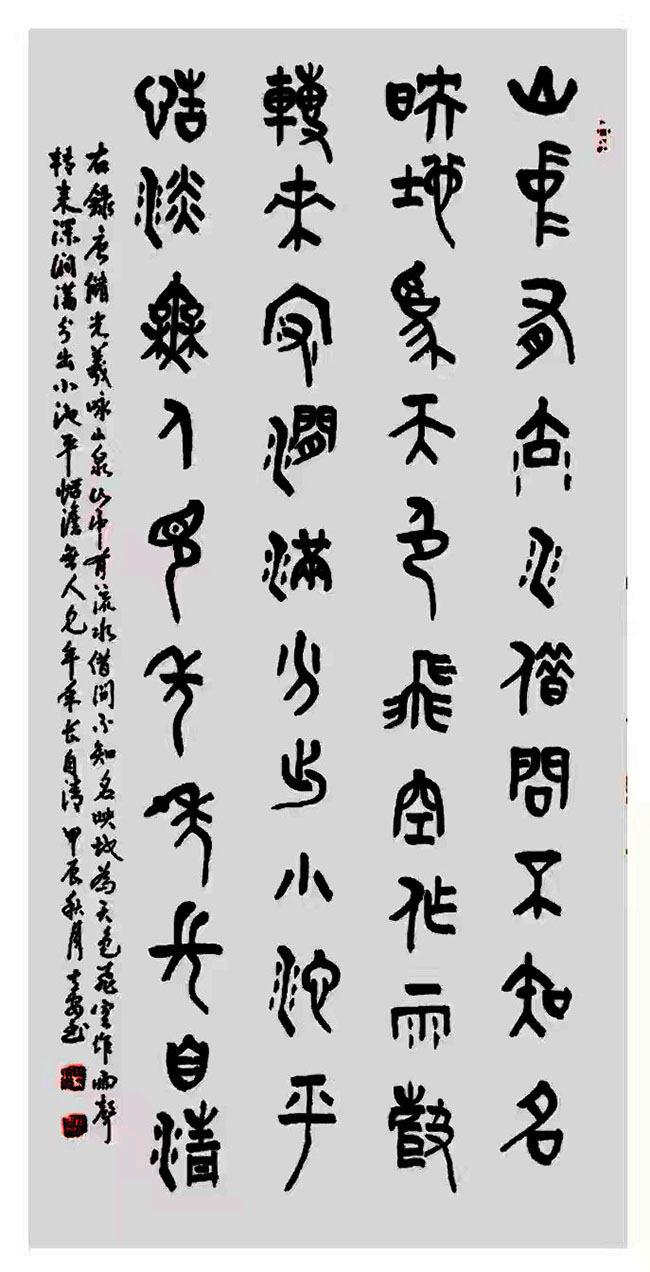 山中有流水借問不知名
映地為天色飛空作雨聲
轉來深澗滿分出小池平
恬淡無人見年年長自清
右錄唐儲光羲詠山泉山中有流水借問不知名映地為天色飛空作雨聲
轉来深澗滿分出小池平恬澹無人見年年長自清甲辰秋月